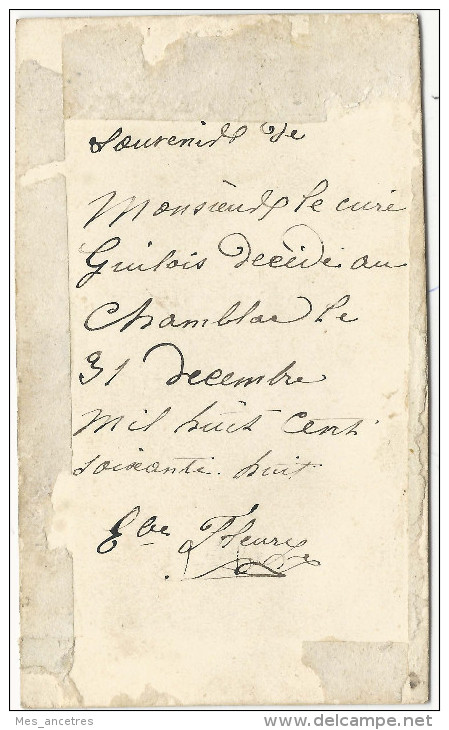 Souvenir de
Monsieur le curé
Guilois décédé au
Chamblac le
31 decembre
mil huit cent
soixante huit
Fleury
Mes_ancetres
www.delcampe.net